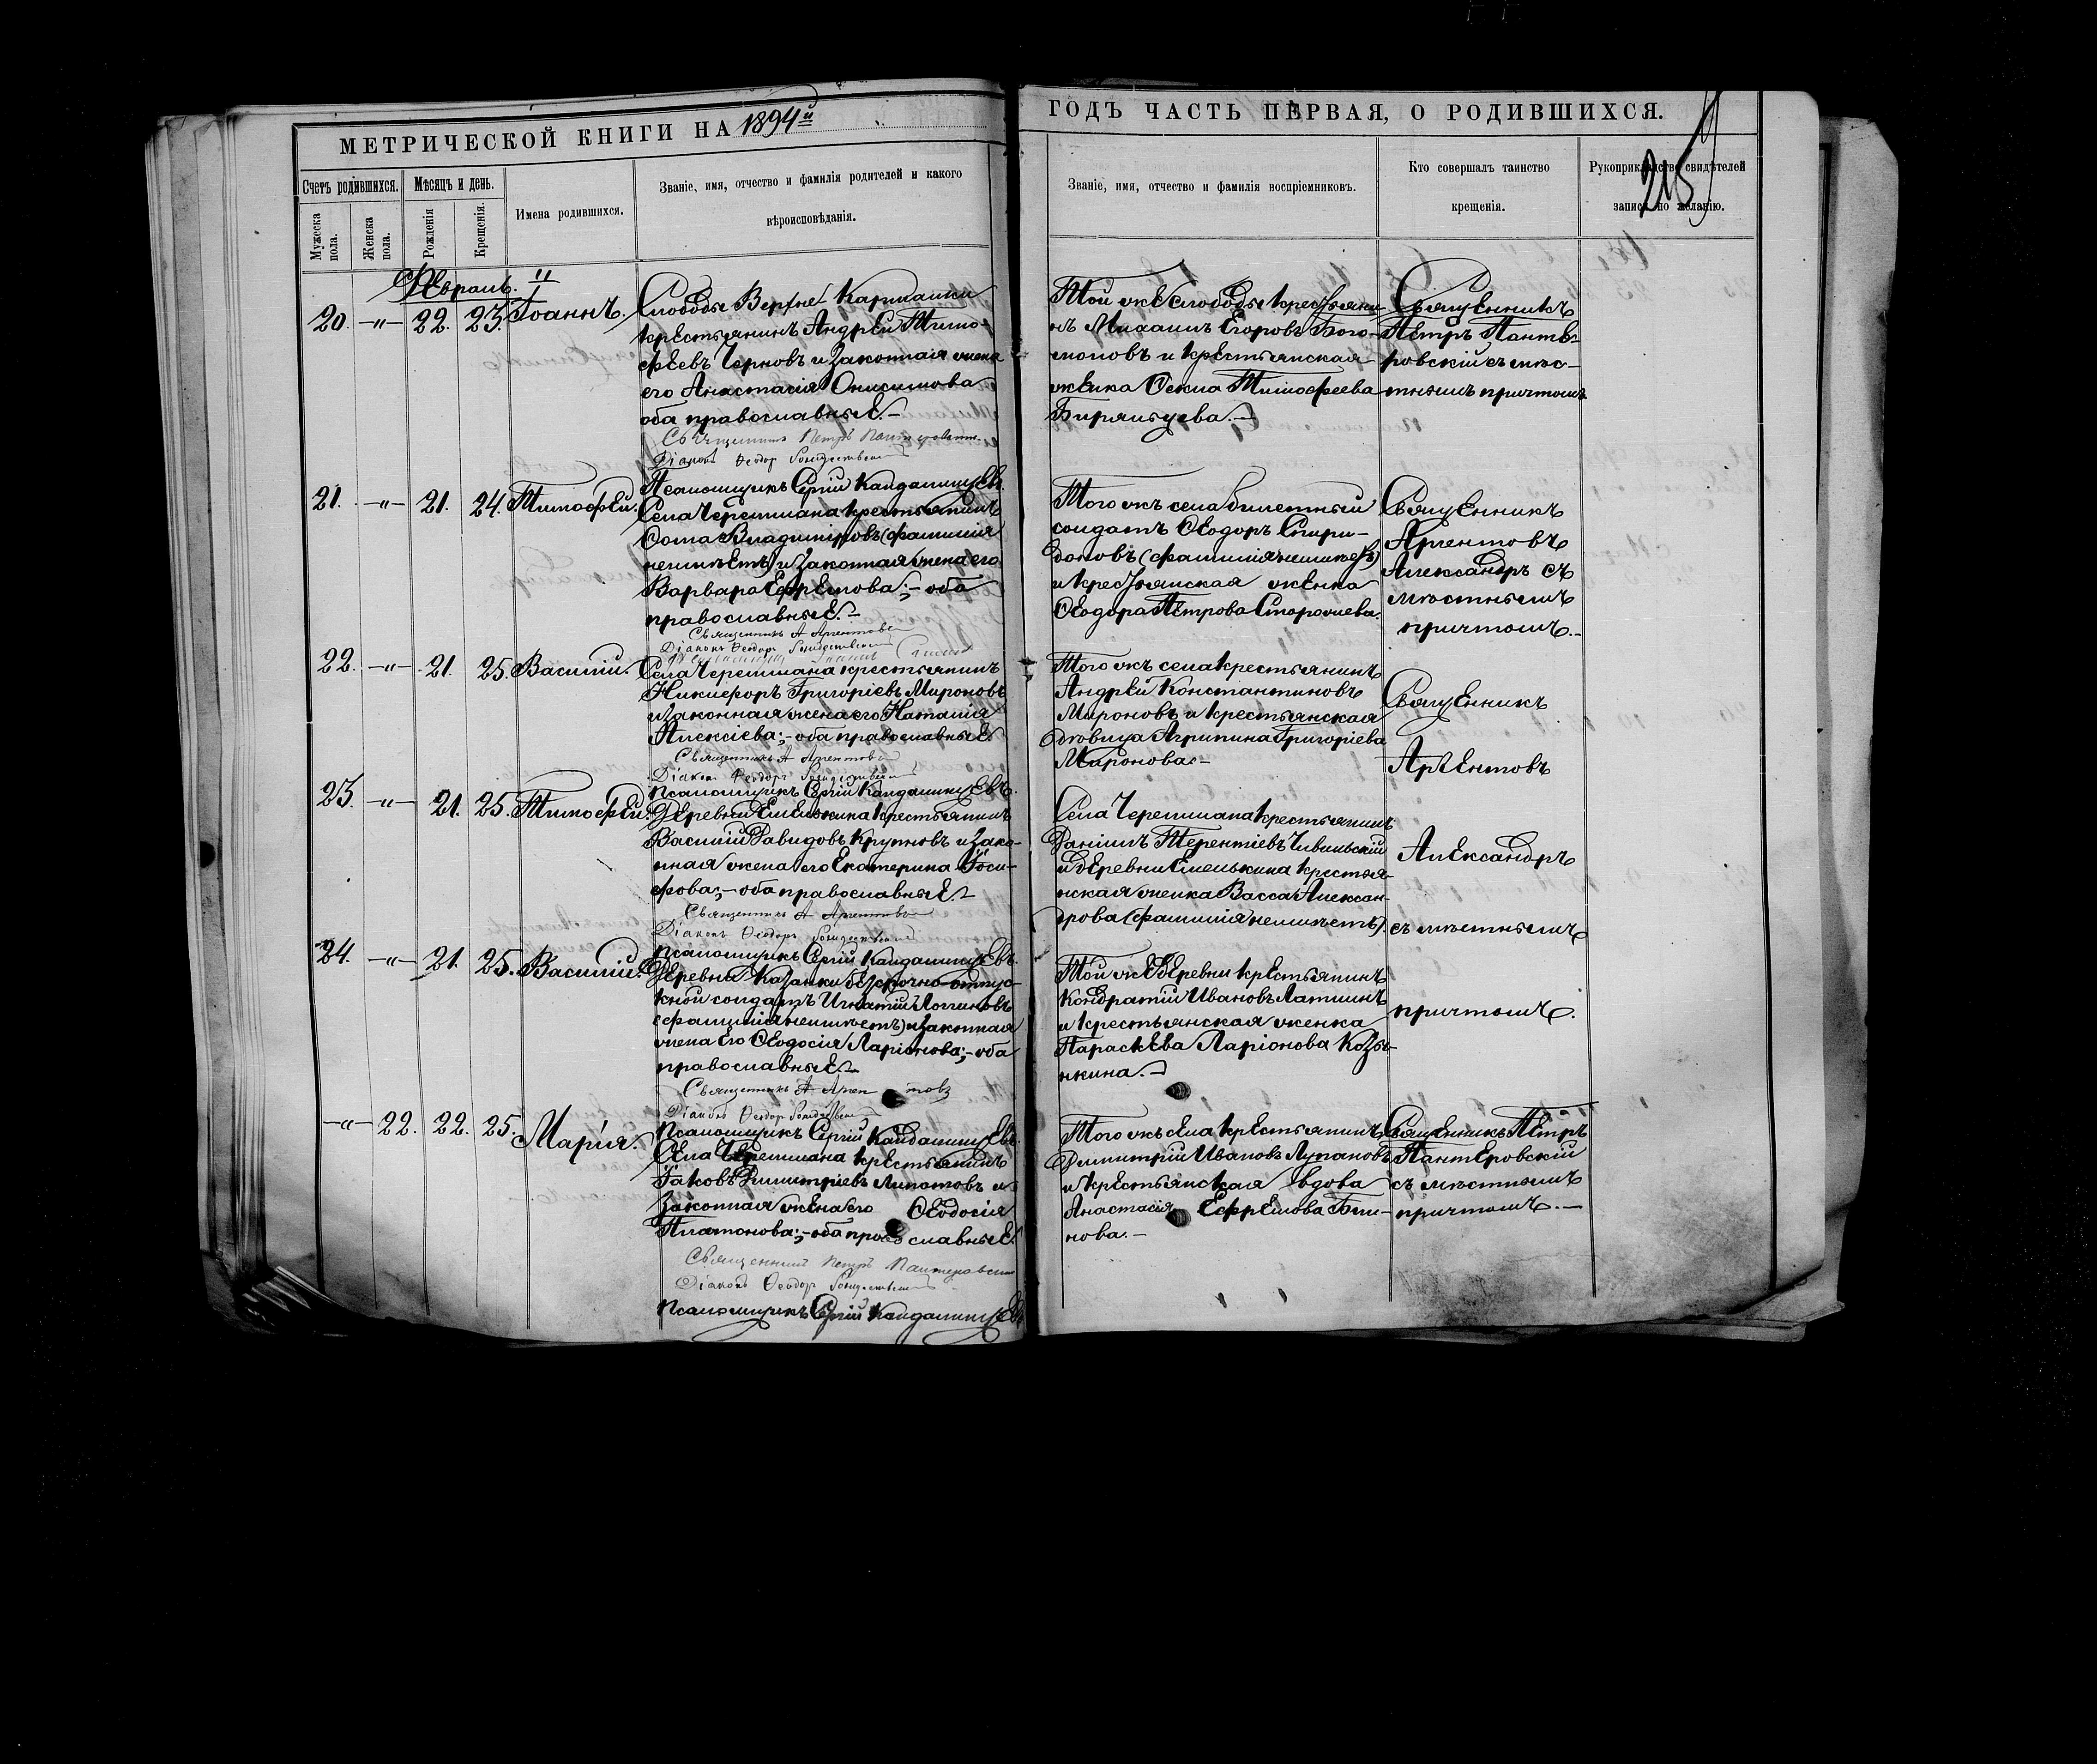 МЕТРИЧЕСКОЙ КНИГИ НА 1894й
ГОДЪ ЧАСТЬ ПЕРВАЯ, О РОДИВШИХСЯ.
215
Счетъ родившихся.
Мѣсяцъ и день.
Мужеска пола.
Женска пола.
Рожденія
Крещенія.
Имена родившихся.
Званіе, имя, отчество и фамилія родителей и какого
вѣроисповѣданія.
Званіе, имя, отчество и фамилія воспріемниковъ.
Кто совершалъ таинство
крещенія.
Рукоприкладство свидѣтелей
записи по желанію.
Февраль.
20. -"- 22. 23. Іоаннъ.
Слободы Верхней Кармалки
крестьянинъ Андрей Тимо-
феевъ Черновъ и законная жена
его Анастасія Онисимова
оба православные
Священникъ Петръ Пантеровскій
Діаконъ Ѳеодоръ Рождественскій
Псаломщикъ Сергій Кандалинцевъ.
Той же слободы крестьяни-
нъ Михаилъ Егоровъ Бого-
моловъ и крестьянская
женка Ѳекла Тимофеева
Биряльцева.
Священникъ
Петръ Панте-
ровскій съ мѣс-
тнымъ причтомъ
21. -"- 21. 24. Тимофей.
Села Черемшана крестьянинъ
Ѳома Владиміровъ (фамиліи
не имѣетъ) и законная жена его
Варвара Ефремова; - оба
православные.
Священникъ А Арентовъ
Діаконъ Ѳеодоръ Рождественскій
Того жъ села билетный
солдатъ Ѳеодоръ Спири-
доновъ (фамиліи не имѣетъ)
и крестьянская женка
Ѳеодора Петрова
Священникъ
Аргентовъ
Александръ съ
мѣстнымъ
причтомъ.
22. -"- 21. 25. Василій.
Села Черемшана крестьянинъ
Никифоръ Григоріевъ Мироновъ
и законная жена его Наталія
Алексіева; - оба православные.
Священникъ А Аргентовъ
Діаконъ Ѳеодоръ Рождественскій
Псаломщикъ Сергій Кандалинцевъ.
Того жъ села крестьянинъ
Андрей Константиновъ
Мироновъ и крестьянская
дѣвица Агрипина Григоріева
Миронова.
Священникъ
Аргентовъ
23. -"- 21. 25. Тимофей.
Деревни Емелькина крестьянинъ
Василій Давидовъ Крупновъ и зако-
нная жена его Екатерина Іоси-
фова; - оба православные.
Священникъ А Аргентовъ
Діаконъ Ѳеодоръ Рождественскій
Псаломщикъ Сергій Кандалинцевъ.
Села Черемшана крестьянинъ
Даніилъ Терентіевъ Чивильскій
и деревни Емелькина крестья-
нская женка Васса Алексан-
дрова (фамиліи не имѣетъ).
Александръ
съ мѣстнымъ
24. -"- 21. 25. Василій.
Деревни Казанки безсрочно-отпус-
кной солдатъ Игнатій Логиновъ
(фамиліи не имѣетъ) и законная
жена его Ѳеодосія Ларіонова; - оба
православные.
Священникъ А Аргентовъ
Діаконъ Ѳеодоръ Рождественскій
Псаломщикъ Сергій Кандалинцевъ.
Той же деревни крестьянинъ
Кондратій Ивановъ Латшинъ
и крестьянская женка
Параскева Ларіонова Козы-
нкина.
причтомъ.
-"- 22. 22. 25. Марія.
Села Черемшана крестьянинъ
Іаковъ Димитріевъ Липотовъ и
законная жена его Ѳеодосія
Платонова; - оба православные.
Священникъ Петръ Пантеровскій
Діаконъ Ѳеодоръ Рождественскій
Псаломщикъ Сергій Кандалинцевъ
Того жъ села крестьянинъ
Димитрій Ивановъ Лупановъ
и крестьянская вдова
Анастасія Ефремова Бли-
нова.
Священникъ Петръ
Пантеровскій
съ мѣстнымъ
причтомъ.